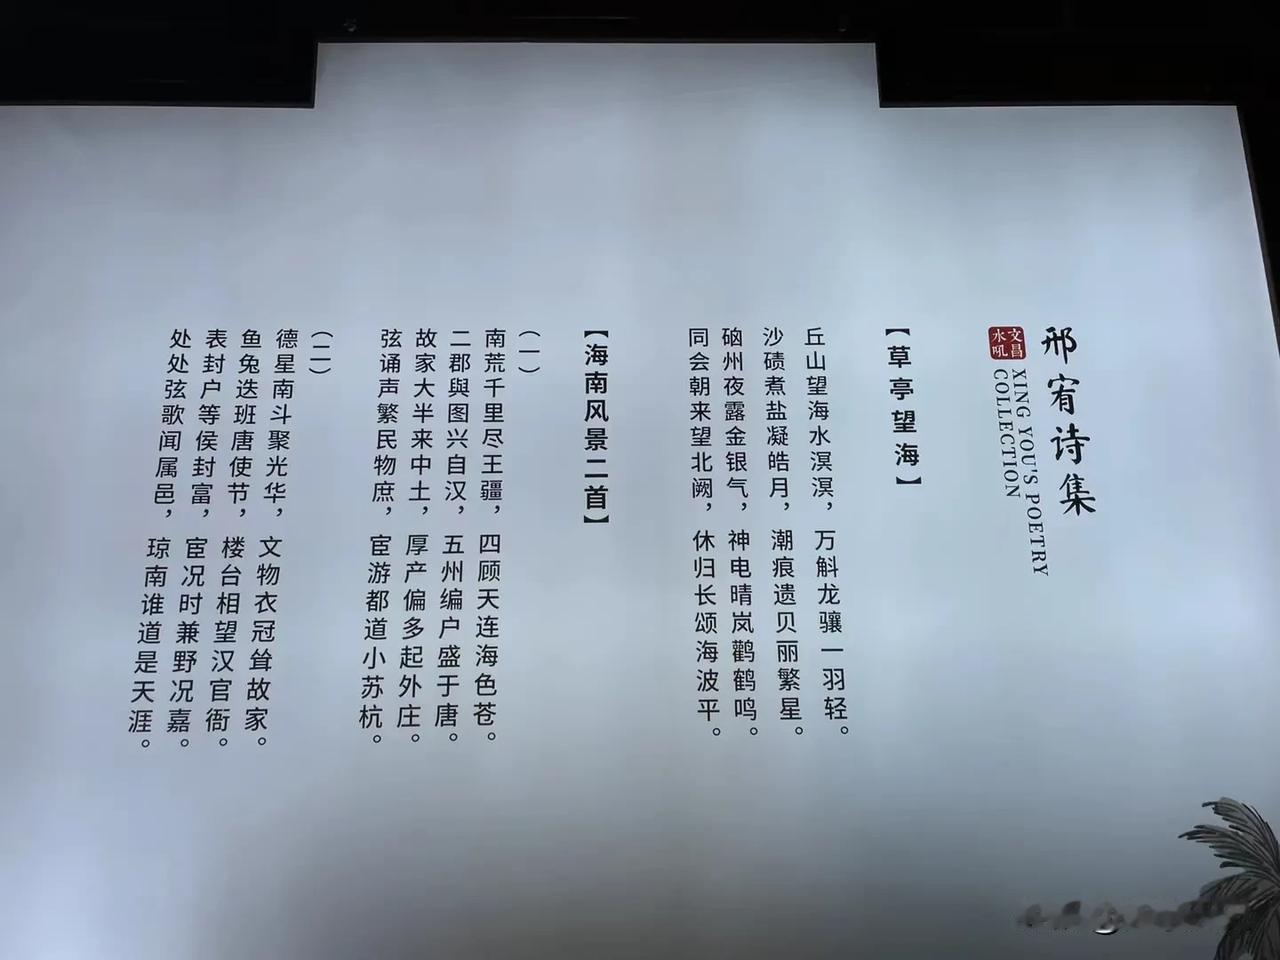 邢宥诗集
文昌
水吼
XING YOU'S POETRY
COLLECTION
【草亭望海】
丘山望海水溟溟，万斛龙骧一羽轻。
沙碛煮盐凝皓月，潮痕遗贝丽繁星。
硇州夜露金银气，神电晴岚鹳鹤鸣。
同会朝来望北阙，休归长颂海波平。
【海南风景二首】
（一）
南荒千里尽王疆，四顾天连海色苍。
二郡與图兴自汉，五州编户盛于唐。
故家大半来中土，厚产偏多起外庄。
弦诵声繁民物庶，宦游都道小苏杭。
（二）
德星南斗聚光华，文物衣冠耸故家。
鱼兔迭班唐使节，楼台相望汉官衙。
表封户等侯封富，宦况时兼野况嘉。
处处弦歌闻属邑，琼南谁道是天涯。